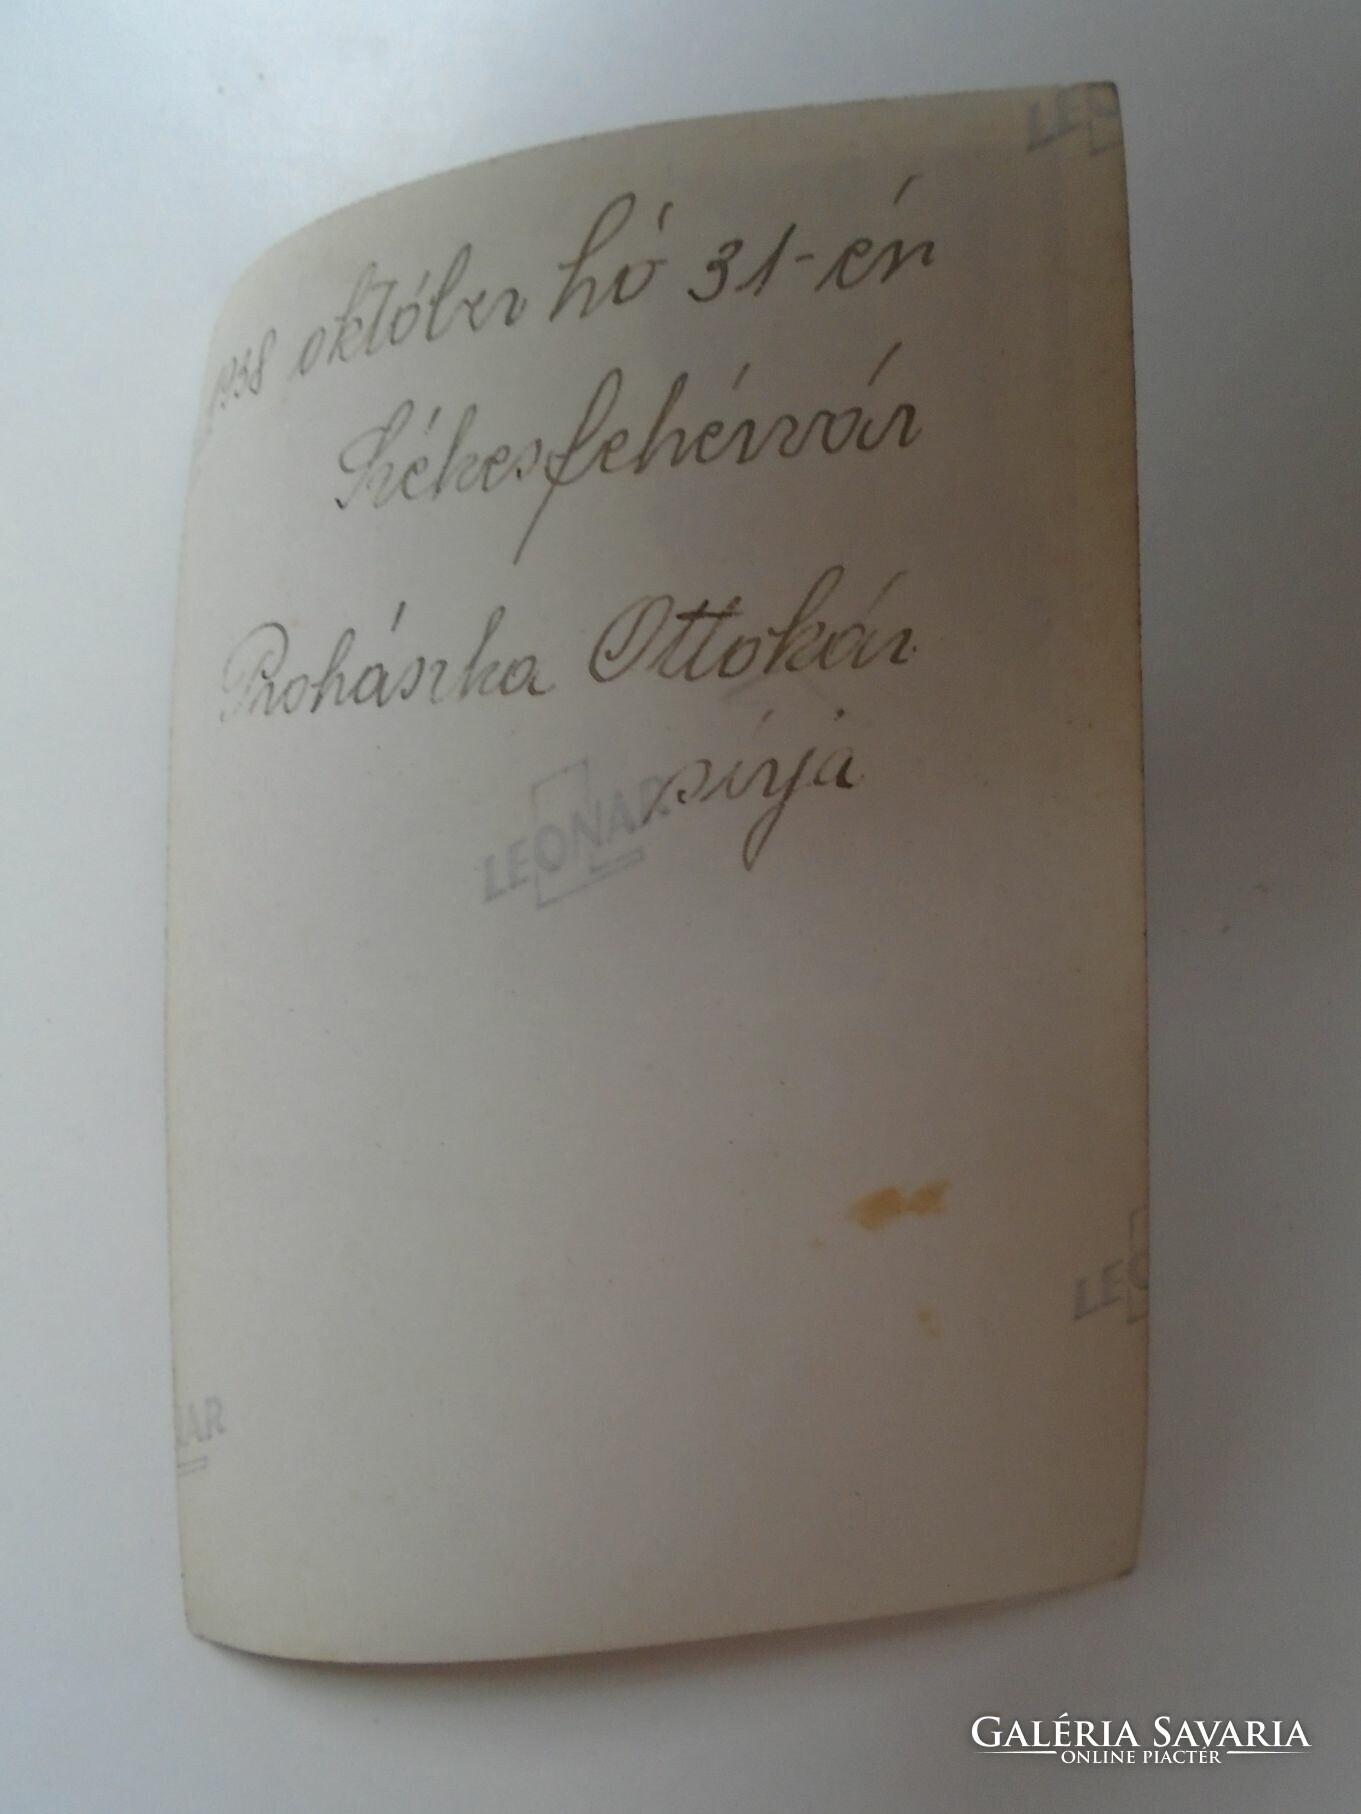 LEO
1938 október hó 31-én
Székesfehérvár
Prohászka Ottokár
sírja
LEONAR
LEO
NAR
GALÉRIA SAVARIA
ONLINE PIACTÉR